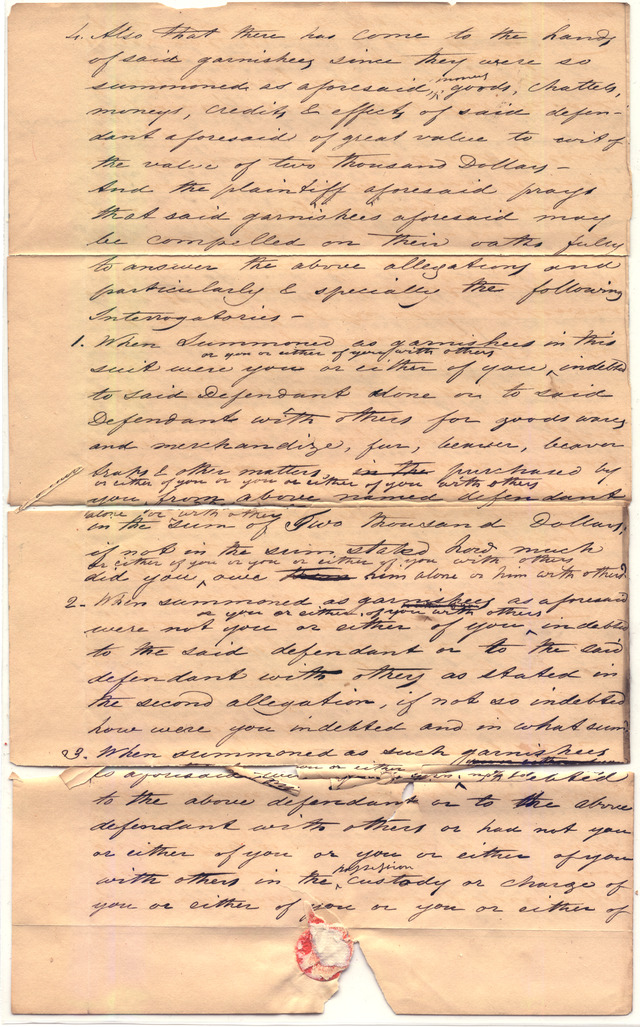 4. Also that there has come to the hands
of said garnishees since they were so
summoned as aforesaid, goods, chattels,
moneys, credits & effects of said defen-
dant aforesaid of great value to wit of
the value of two thousand Dollars –
And the plaintiff aforesaid prays
that said garnishees aforesaid may
be compelled on their oaths fully
to answer the above allegations and
particularly & specially the following
Interrogatories –
1. When Summoned as garnishees in this
or you or either of you with others
suit were you or either of you indebted
to said Defendant alone or to said
Defendant with others for goods wares
and merchandize, fur, beaver, beaver
traps & other matters, in the purchased by
or either of you or you or either of you with others
you, from above named defendant
alone or with others
in the sum of Two thousand Dollars,
if not in the sum stated how much
or either of you or you or either of you with others
did you owe him alone or him with others
2. When summoned as garnishees as aforesaid
or you or either of you with others
were not you or either of you indebted
to the said defendant or to the said
defendant with others as stated in
the second allegation, if not so indebted
how were you indebted and in what sum
3. When summoned as such garnishees
as aforesaid indebted
to the above defendant or to the above
defendant with others or had not you
or either of you or you or either of you
possession
with others in the custody or charge of
you or either of you or you or either of